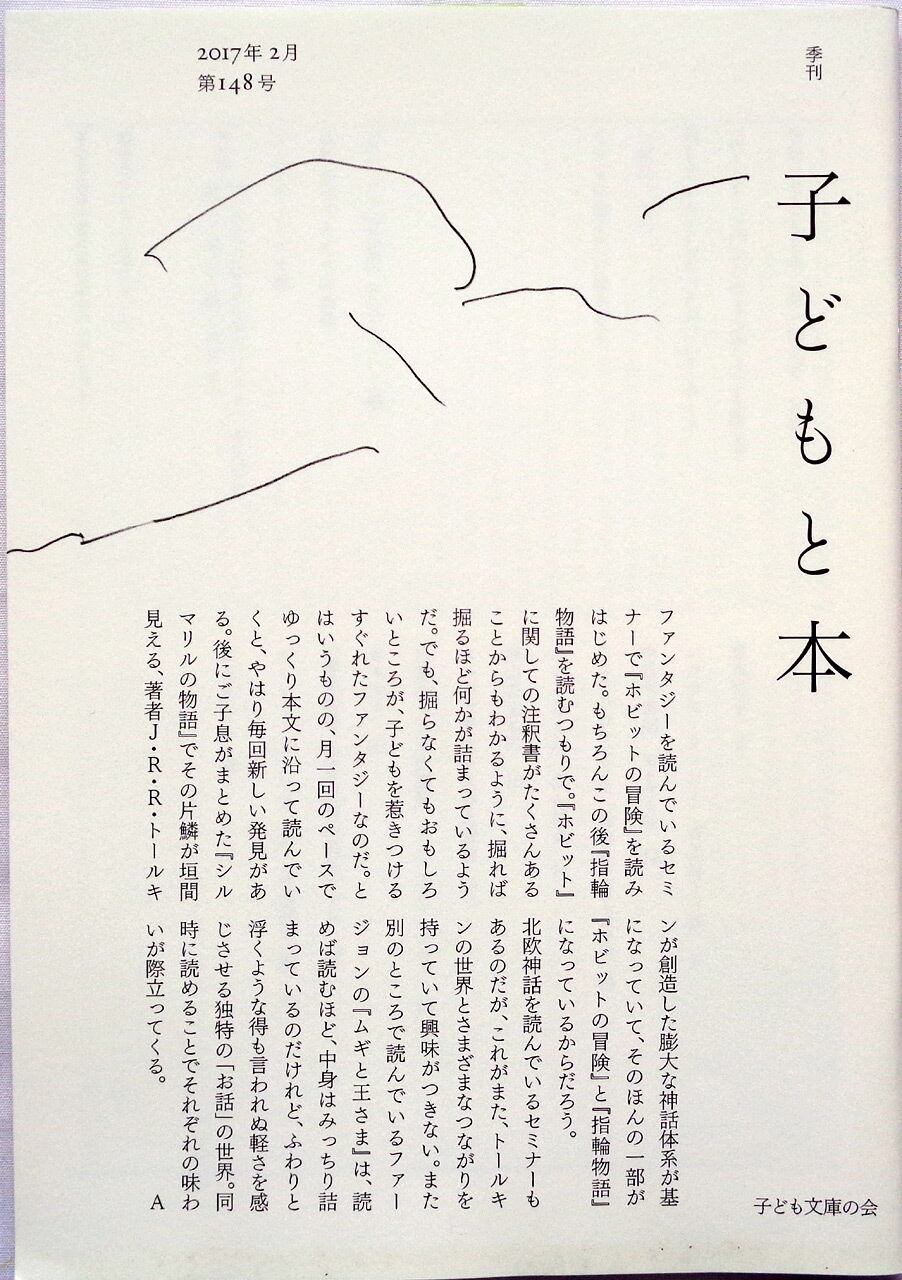 季刊
子どもと本
2017年 2月
第148号
ファンタジーを読んでいるセミ
ナーで『ホビットの冒険』を読み
はじめた。もちろんこの後『指輪
物語』を読むつもりで。『ホビット』
に関しての注釈書がたくさんある
ことからもわかるように、掘れば
掘るほど何かが詰まっているよう
だ。でも、掘らなくてもおもしろ
いところが、子どもを惹きつける
すぐれたファンタジーなのだ。と
はいうものの、月一回のペースで
ゆっくり本文に沿って読んでい
くと、やはり毎回新しい発見があ
る。後にご子息がまとめた『シル
マリルの物語』でその片鱗が垣間
見える、著者J・R・R・トールキ
ンが創造した膨大な神話体系が基
になっていて、そのほんの一部が
『ホビットの冒険』と『指輪物語』
になっているからだろう。
北欧神話を読んでいるセミナーも
あるのだが、これがまた、トールキ
ンの世界とさまざまなつながりを
持っていて興味がつきない。また
別のところで読んでいるファー
ジョンの『ムギと王さま』は、読
めば読むほど、中身はみっちり詰
まっているのだけれど、ふわりと
浮くような得も言われぬ軽さを感
じさせる独特の「お話」の世界。同
時に読めることでそれぞれの味わ
いが際立ってくる。 A
子ども文庫の会